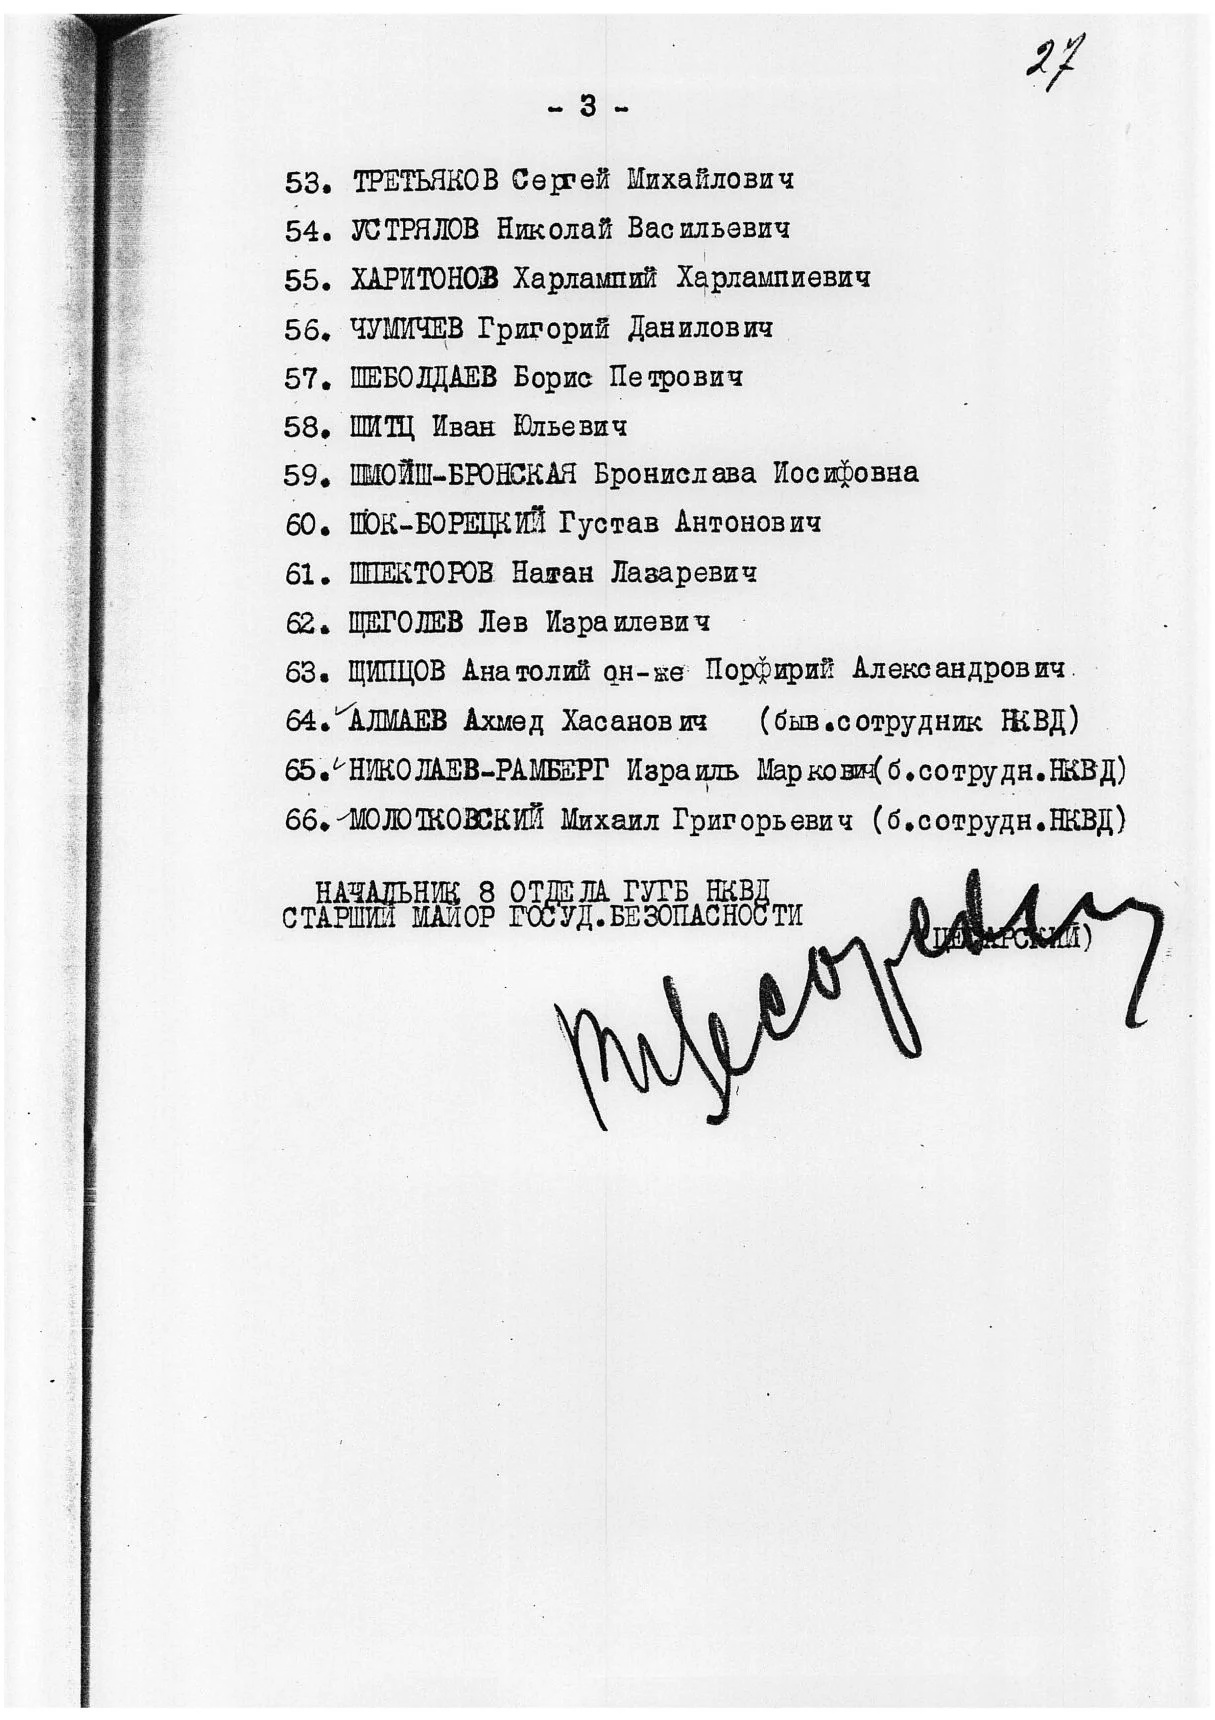 27
- 3 -
53. ТРЕТЬЯКОВ Сергей Михайлович
54. УСТРЯЛОВ Николай Васильевич
55. ХАРИТОНОВ Харлампий Харлампиевич
56. ЧУМИЧЕВ Григорий Данилович
57. ШЕБОЛДАЕВ Борис Петрович
58. ШИТЦ Иван Юльевич
59. ШМОЙШ-БРОНСКАЯ Бронислава Иосифовна
60. ШОК-БОРЕЦКИЙ Густав Антонович
61. ШПЕКТОРОВ Натан Лазаревич
62. ЩЕГОЛЕВ Лев Израилевич
63. ЩИПЦОВ Анатолий он-же Порфирий Александрович
64. АЛМАЕВ Ахмед Хасанович (быв.сотрудник НКВД)
65. НИКОЛАЕВ-РАМБЕРГ Израиль Маркович(б.сотрудн.НКВД)
66. МОЛОТКОВСКИЙ Михаил Григорьевич (б.сотрудн.НКВД)
НАЧАЛЬНИК 8 ОТДЕЛА ГУГБ НКВД
СТАРШИЙ МАЙОР ГОСУД.БЕЗОПАСНОСТИ
ЦЕСАРСКИЙ)